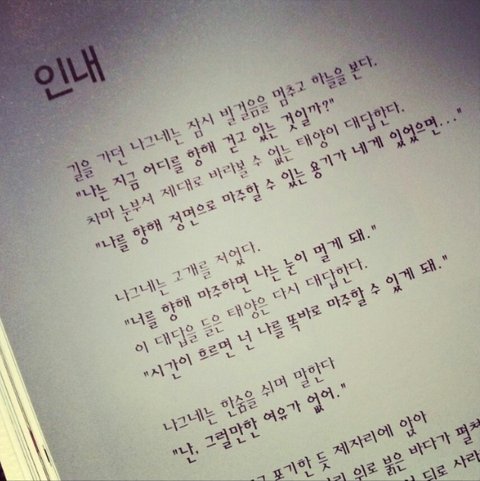 인내
길을 가던 나그네는 잠시 발걸음을 멈추고 하늘을 본다.
"나는 지금 어디를 향해 걷고 있는 것일까?"
차마 눈부셔 제대로 바라볼 수 없는 태양이 대답한다.
"나를 향해 정면으로 마주할 수 있는 용기가 네게 있었으면..."
나그네는 고개를 저었다.
"너를 향해 마주하면 나는 눈이 멀게 돼."
이 대답을 들은 태양은 다시 대답한다.
"시간이 흐르면 넌 나를 똑바로 마주할 수 있게 돼."
나그네는 한숨을 쉬며 말한다
"난, 그럴만한 여유가 없어."
포기한 듯 제자리에 앉아
위로 붉은 바다가 펼쳐
뒤로 사라